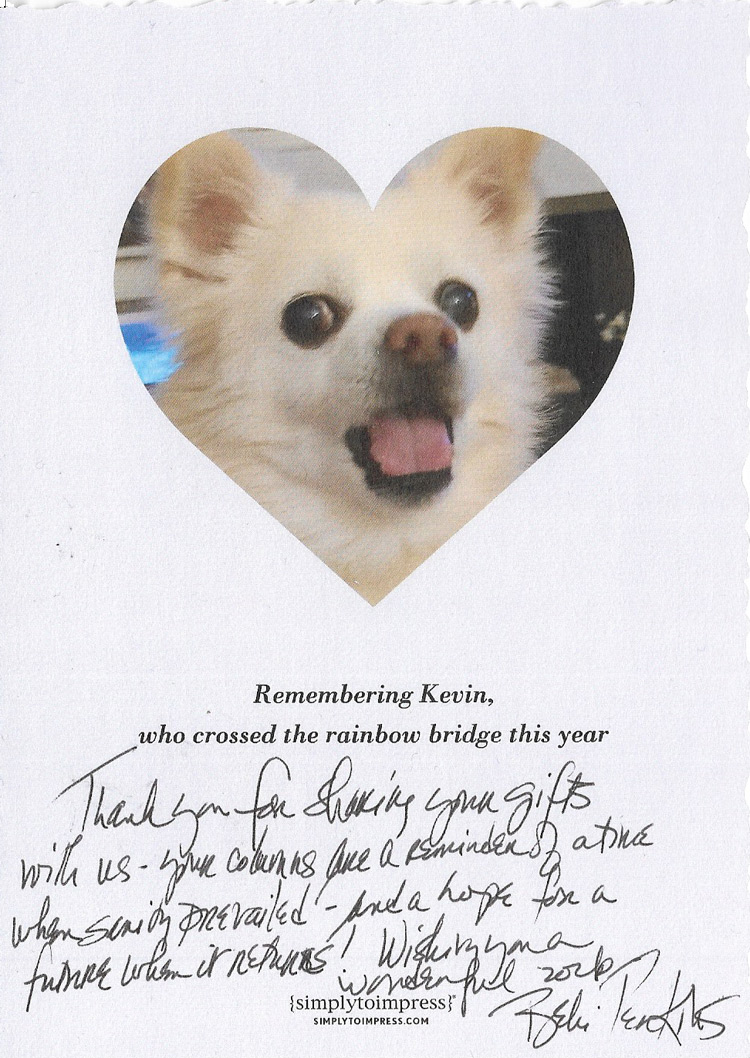 Remembering Kevin,
who crossed the rainbow bridge this year
Thank you for sharing your gifts
with us - your columns are a reminder of a time
when sanity prevailed - and a hope for a
future when it returns! Wishing you a
wonderful 2026
{simplytoimpress}
SIMPLYTOIMPRESS.COM
Perkins